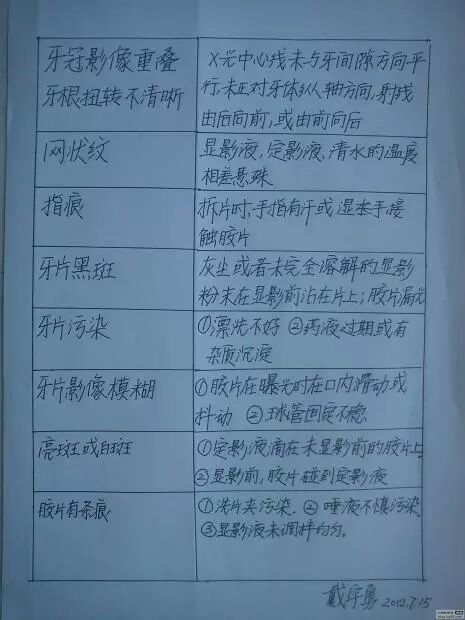 牙冠影像重叠
牙根扭转不清晰
X光中心线未与牙间隙方向平
行,未正对牙体纵轴方向,射线
由后向前,或由前向后
网状纹
显影液,定影液、清水的温度
相差悬殊
指痕
拆片时,手指有汗或湿水手接
触胶片
牙片黑斑
灰尘或者未完全溶解的显影
粉末在显影前沾在片上;胶片漏光
牙片污染
①漂洗不好 ②药液过期或有
杂质沉淀
牙片影像模糊
①胶片在曝光时在口内滑动或
抖动 ②球管固定不稳
亮斑或白斑
①定影液滴在未显影前的胶片上
②显影前,胶片碰到定影液
胶片有条痕
①洗片夹污染、②唾液不慎污染
③显影液未调拌均匀。
戴宇勇 2012.7.15